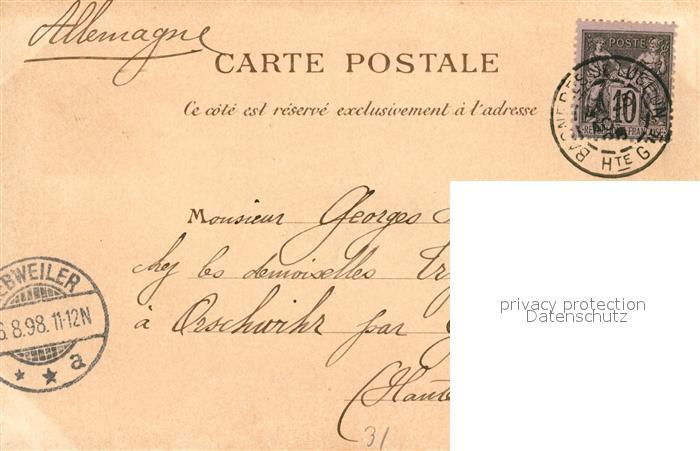 Allemagne
CARTE POSTALE
Ce côté est réservé exclusivement à l'adresse
POSTE
10
HTE G
Monsieur Georges
chez les demoiselles
à Orschwihr par
(Haute
EBWEILER
6.8.98.11-12N
* * a
31
privacy protection
Datenschutz